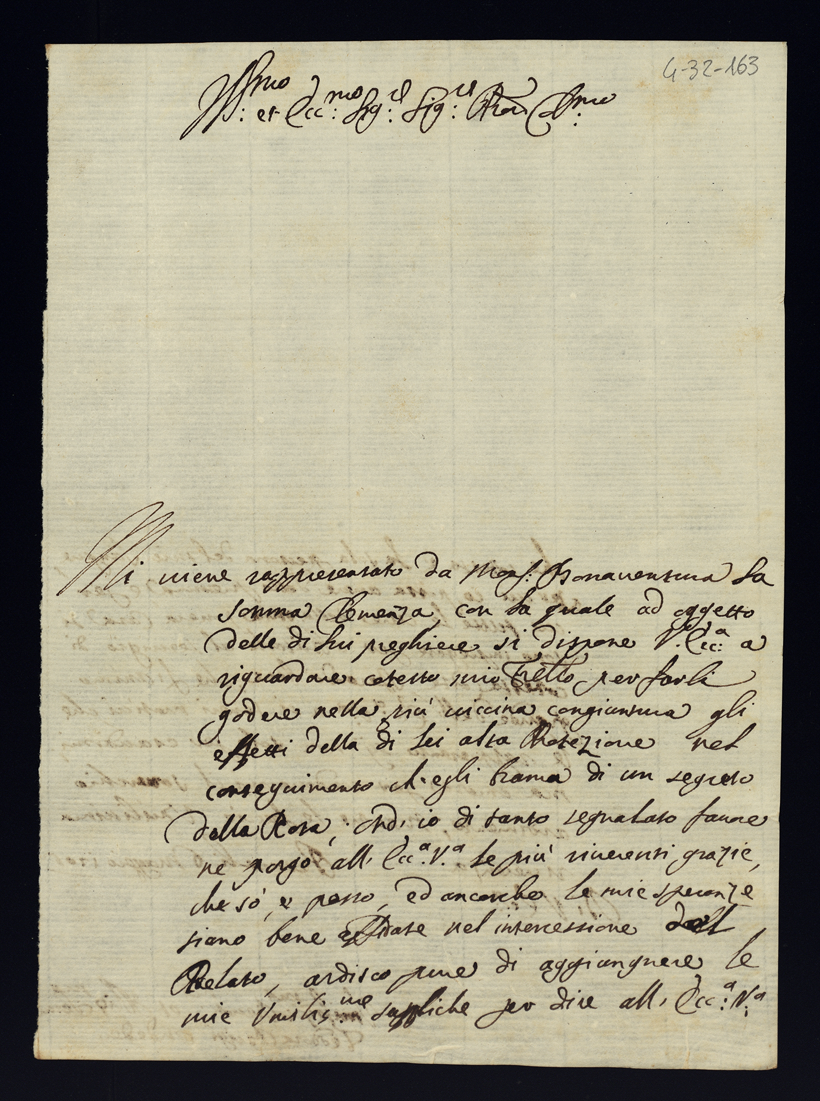 4-32-163
Ill:mo et Ecc:mo Sig:re Sig:re Pron Col:mo
Mi viene rappresentato da Mons: Bonaventura la
somma Clemenza, con la quale ad oggetto
delle di lui preghiere si dispone V. Ecc:a a
riguardare cotesto mio Fratello per farli
godere nella più vicina congiuntura gli
effetti della di lei alta Protezione nel
conseguimento ch'egli brama di un segreto
della Rota, ond'io di tanto segnalato favore
ne porgo all'Ecc:a V.a le più riverenti grazie,
che sò, e posso, ed ancorche le mie speranze
siano bene affidate nel intercessione del
Prelato, ardisco pure di aggiungnere le
mie Umilis:me suppliche per dire all'Ecc:a V:a